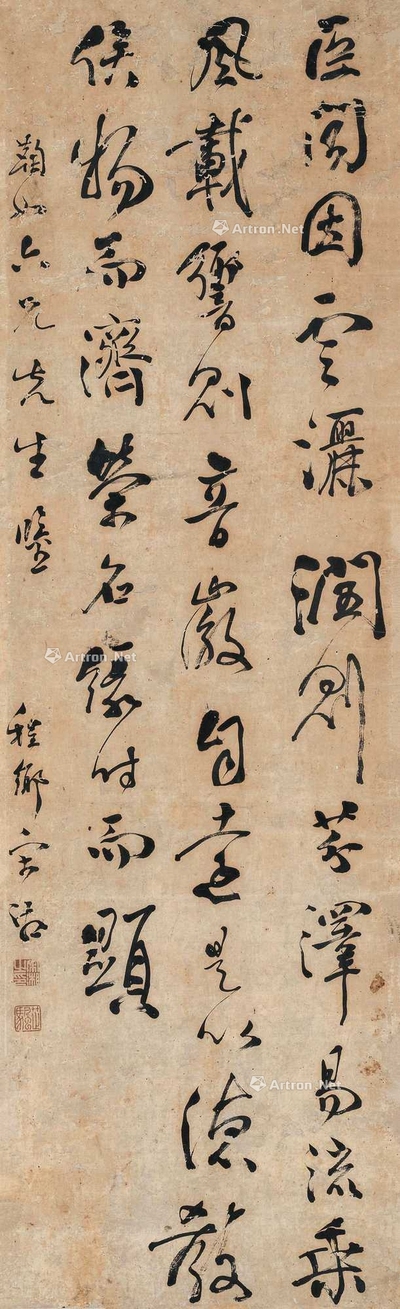 臣闻因云灑潤則芬澤易流乘
風載響則音徽自遠是以德教
俟物而濟榮名緣时而顯
鞠如六兄先生鑒
程鄉宋湘
Artron.Net
Artron.Net
Artron.Net